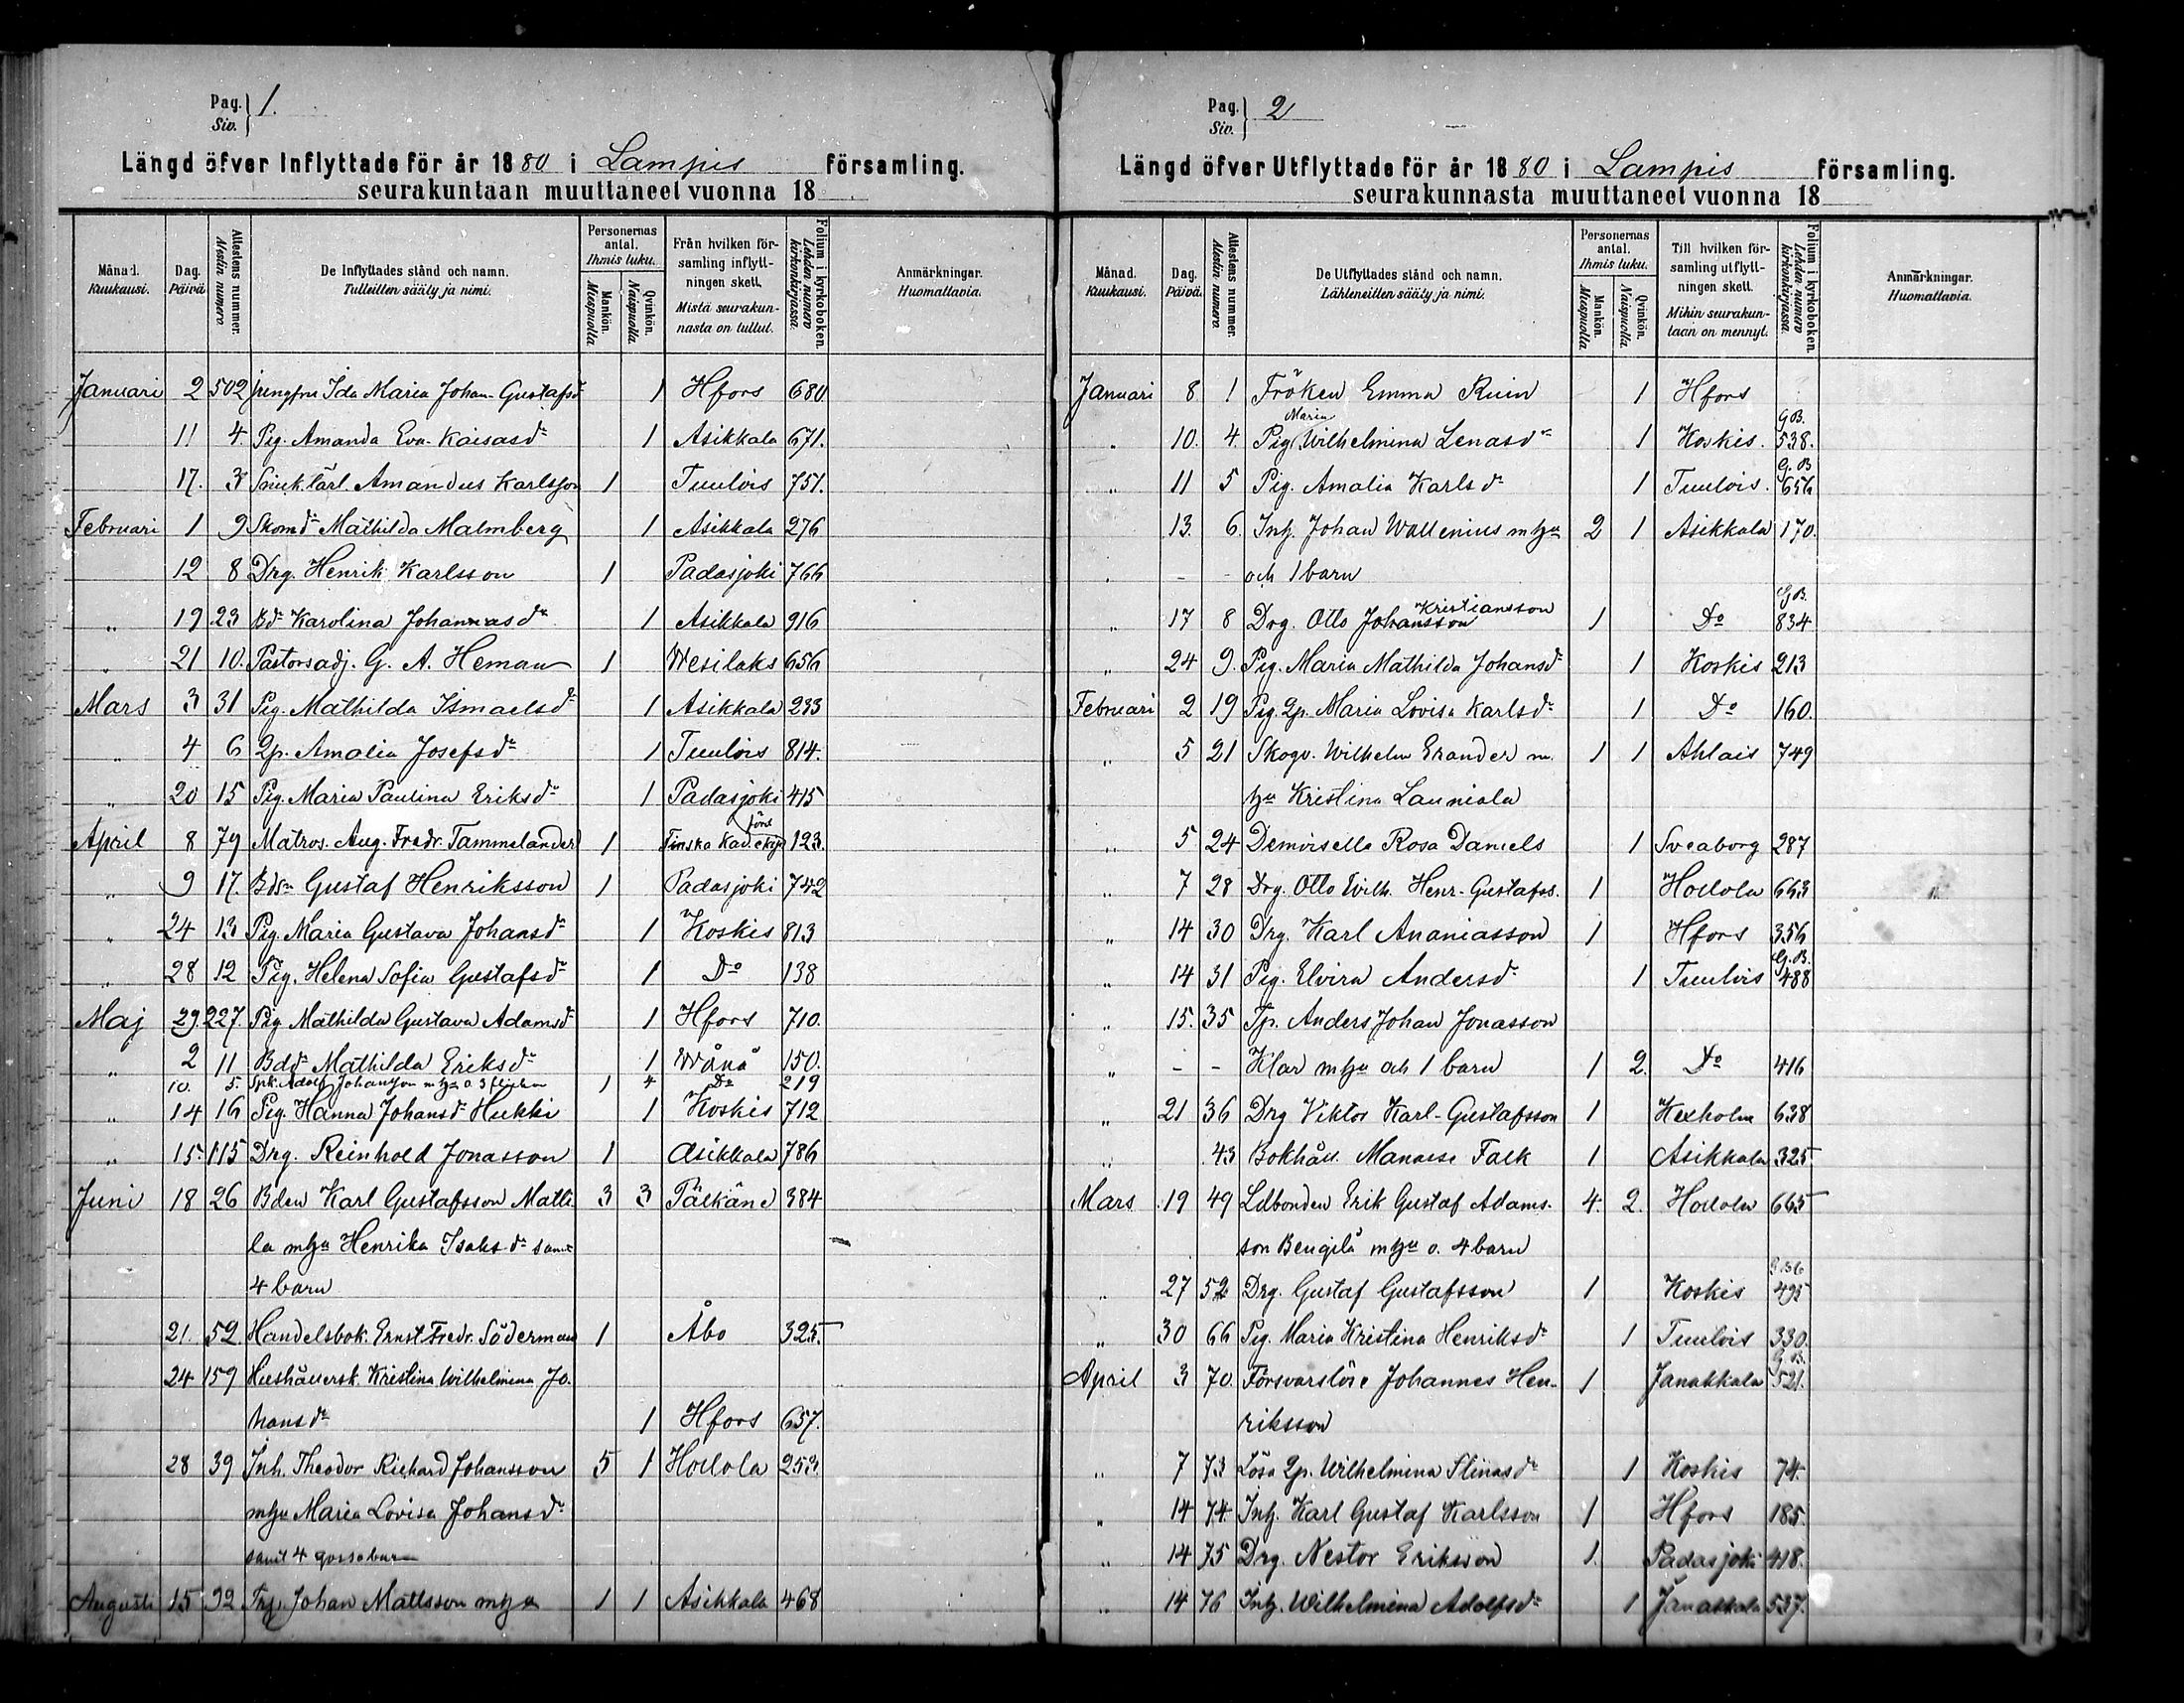 Pag. Siv. } 1.
Längd öfver Inflyttade för år 1880 i Lampis församling.
seurakuntaan muuttaneet vuonna 18
Månad. Kuukausi. | Dag. Päivä | Attestens nummer. Atestin numero. | De Inflyttades stånd och namn. Tulleitten sääty ja nimi. | Personernas antal. Ihmis luku. Mankön. Miespuolia Qvinkön. Naispuolia | Från hvilken församling inflyttningen skett. Mistä seurakunnasta on tullut. | Folium i kyrkoboken. Lehden numero kirkonkirjassa. | Anmärkningar. Huomattavia.
Januari 2 502 jungfru Ida Maria Johan-Gustafsdr 1 Hfors 680
11 4. Pig. Amanda Eva-Kaisasdr 1 Asikkala 671.
17. 3 Snick.lärl. Amandus Karlsson 1 Tuulois 751.
Februari 1 9 Skomdr Mathilda Malmberg 1 Asikkala 276
12 8 Drg. Henrik Karlsson 1 Padasjoki 766
" 19 23 Bdr Karolina Johannasdr 1 Asikkala 916
" 21 10. Pastorsadj. G. A. Heman 1 Wesilaks 656
Mars 3 31 Pig. Mathilda Ismaelsdr 1 Asikkala 233
" 4 6 Qp. Amalia Josefsdr 1 Tuulois 814.
" 20 15 Pig. Maria Paulina Eriksdr 1 Padasjoki 415
April 8 79 Matros. Aug. Fredr. Tammelander 1 Finska 123.
" 9 17. Gustaf Henriksson 1 Padasjoki 742
" 24 13 Pig. Maria Gustava Johansdr 1 Koskis 813
" 28 12 Pig. Helena Sofia Gustafsdr 1 Do 138
Maj 29. 227. Pig Mathilda Gustava Adamsdr 1 Hfors 710.
" 2 11 Bddr Mathilda Eriksdr 1 Wånå 150.
10. 5. Spk. Adolf Johansson m hu o. 3 flickor 1 4 Do 219
" 14 16 Pig. Hanna Johansdr Hukki 1 Koskis 712
" 15. 115 Drg. Reinhold Jonasson 1 Asikkala 786
Juni 18 26 Bden Karl Gustafsson Matti- 3 3 Pälkäne 384
la m hu Henrika Isaksdr samt
4 barn
21. 52. Handelsbok. Ernst Fredr. Söderman 1 Åbo 325
24 159 Hushållersk. Kristina Wilhelmina Jo-
hansdr 1 Hfors 657.
28 39 Inh. Theodor Richard Johansson 5 1 Hollola 253
m hu Maria Lovisa Johansdr
samt 4 gossebarn
Augusti 15 92 Johan Mattsson m hu 1 1 Asikkala 468
Pag. Siv. } 2
Längd öfver Utflyttade för år 1880 i Lampis församling.
seurakunnasta muuttaneet vuonna 18
Månad. Kuukausi. | Dag. Päivä. | Attestens nummer. Atestin numero. | De Utflyttades stånd och namn. Lähteneitten sääty ja nimi. | Personernas antal. Ihmis luku. Mankön. Miespuolia Qvinkön. Naispuolia | Till hvilken församling utflyttningen skett. Mihin seurakuntaan on mennyt. | Folium i kyrkoboken. Lehden numero kirkonkirjassa. | Anmärkningar. Huomattavia.
Januari 8 1 Fröken Emma Ruin 1 Hfors
" 10. 4. Pig. Maria Wilhelmina Lenasdr 1 Koskis. G.B. 538.
" 11 5 Pig. Amalia Karlsdr 1 Tuulois. G.B. 656
13. 6. Inh. Johan Wallenius m hu 2 1 Asikkala 170.
" - - och 1 barn
" 17 8 Drg. Otto Johansson Kristiansson 1 Do G.B. 834
" 24 9. Pig. Maria Mathilda Johansdr 1 Koskis 213
Februari 2 19 Pig. Qp. Maria Lovisa Karlsdr 1 Do 160.
" 5 21 Skogv. Wilhelm Erander m. 1 1 Ahlais 749
hu Kristina Launiala
" 5 24 Demoiselle Rosa Daniels 1 Sveaborg 287
" 7 28 Drg. Otto Wilh. Henr-Gustafss. 1 Hollola 663
" 14 30 Drg. Karl Ananiasson 1 Hfors 356
" 14 31 Pig. Elvira Andersdr 1 Tuulois G.B. 488
" 15. 35 Tp. Anders Johan Jonasson
" - - Klar m hu och 1 barn 1 2. Do 416
" 21 36 Drg Viktor Karl-Gustafsson 1 Kexholm 638
" 43 Bokhåll. Manasse Falk 1 Asikkala 325
Mars 19 49 Ldbonden Erik Gustaf Adams- 4. 2. Hollola 665
son Bengilä m hu o. 4 barn
" 27 52 Drg. Gustaf Gustafsson 1 Koskis 495
" 30 66 Pig. Maria Kristina Henriksdr 1 Tuulois 330.
April 3 70. Försvarslöse Johannes Hen- 1 Janakkala G.B. 521.
riksson
" 7 73 Lösa Qp. Wilhelmina Stinasdr 1 Koskis 74.
" 14 74 Inh. Karl Gustaf Karlsson 1 Hfors 185.
" 14 75 Drg. Nestor Eriksson 1. Padasjoki 418.
" 14 76 Inh. Wilhelmina Adolfsdr 1 Janakkala 537.